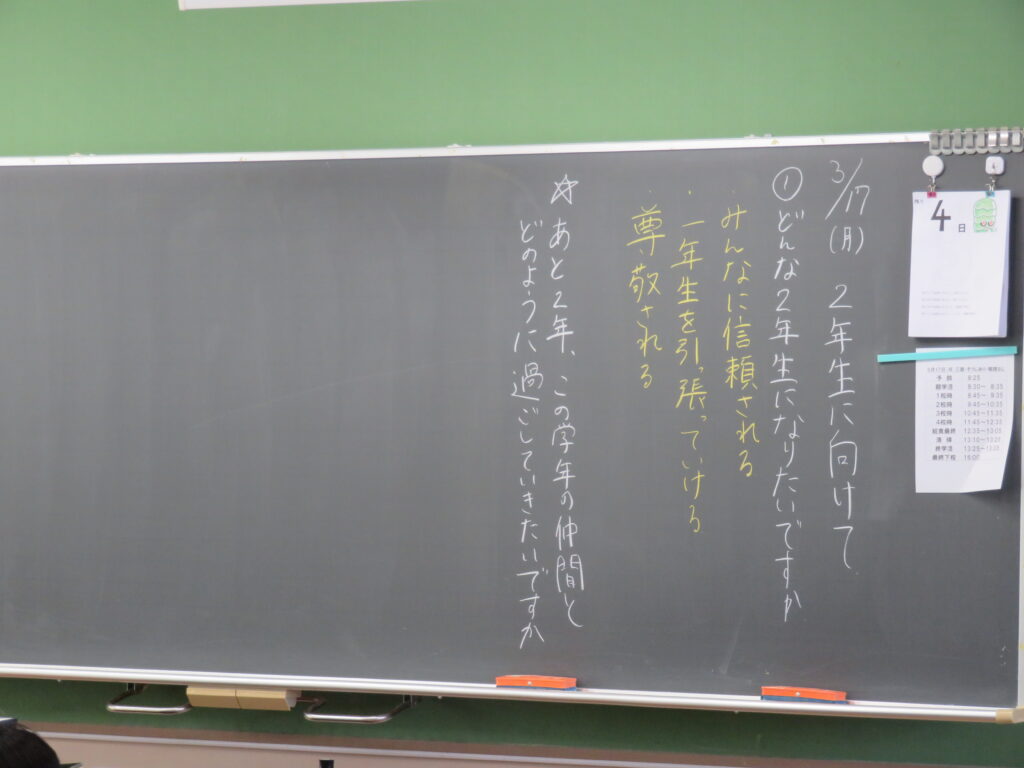 3/17(月) 2年生に向けて
①どんな2年生になりたいですか
・みんなに信頼される
・一年生を引っ張っていける
・尊敬される
☆あと2年、この学年の仲間と
どのように過ごしていきたいですか
残り
4日
予鈴 8:25
朝学活 8:30～ 8:35
1校時 8:45～ 9:35
2校時 9:45～10:35
3校時 10:45～11:35
4校時 11:45～12:35
給食最終 12:35～13:05
清掃 13:10～13:20
終学活 13:25～13:35
最終下校 15:00